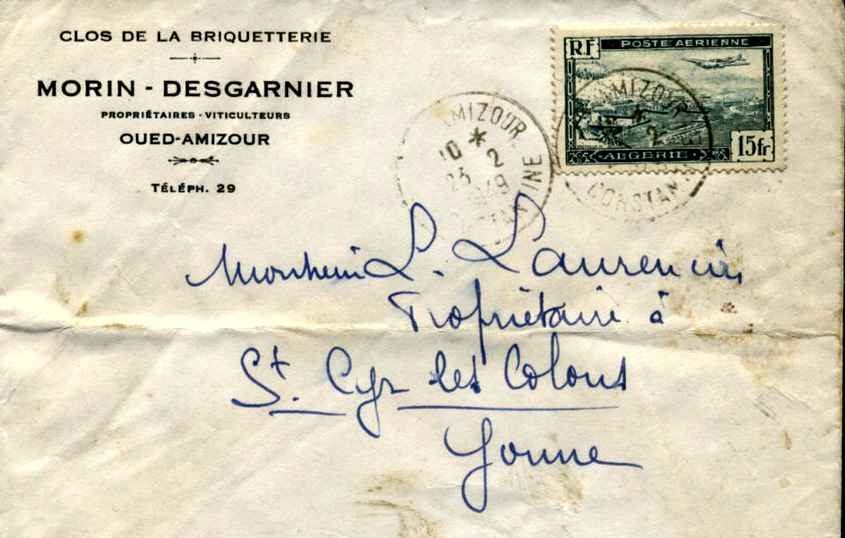 CLOS DE LA BRIQUETTERIE
MORIN - DESGARNIER
PROPRIÉTAIRES - VITICULTEURS
OUED-AMIZOUR
TÉLÉPH. 29
RF POSTE AERIENNE
ALGERIE 15fr
AMIZOUR
10 * 2
23
CONSTANTINE
AMIZOUR
CONSTAN
Monsieur L. Laurencin
Propriétaire à
St. Cyr les Colons
Yonne